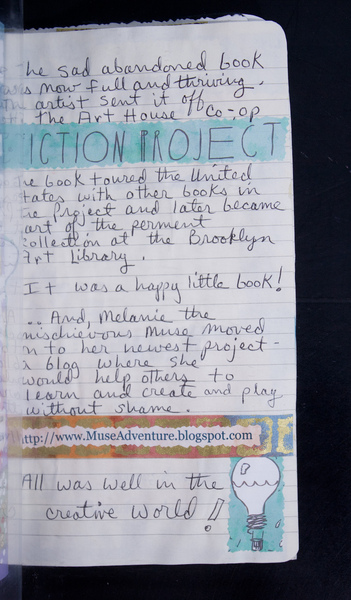 The sad abandoned book
was now full and thriving.
The artist sent it off
to the Art House Co-op
FICTION PROJECT
The book toured the United
States with other books in
the Project and later became
part of the perment
collection at the Brooklyn
Art Library.
It was a happy little book!
... And, Melanie the
mischievous Muse moved
on to her newest project -
a blog where she
would help others to
learn and create and play
without shame.
http://www.MuseAdventure.blogspot.com
All was well in the
creative world!